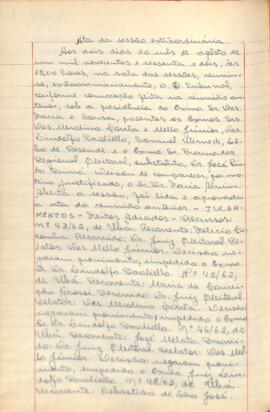 Ata da sessão extraordinária
Aos dois dias do mês de agosto de
um mil novecentos e sessenta e dois, às
15,00 horas, na sala das sessões, reuniu-
se, extraordinariamente, o E. Tribunal,
conforme convocação feita na reunião an-
terior, sob a presidência do Exmo. Sr. Des.
Faria e Sousa, presentes os Exmos Srs.
Des. Merolino Corrêa e Mello Júnior, Drs.
Lindolfo Paoliello, Samuel
de Resende e o Exmo. Sr. Procurador
Regional Eleitoral, substituto, Dr. José
Deixou de comparecer, por
motivo justificado, o Sr. Dr. Faria
Aberta a sessão, foi lida e aprovada
a ata da reunião anterior. - JULGA-
MENTOS - Feitos Adiados - Recursos:
nº 43/62, de Ubá. Recorrente: Felício
Recorrido: Dr. Juiz Eleitoral. Re-
lator: Des. Mello Júnior. Decisão: ne-
garam provimento, impedido o Exmo
Sr. Dr. Lindolfo Paoliello. Nº 45/62,
de Ubá. Recorrente: Maria da Concei-
ção Recorrido: Dr. Juiz Eleitoral
Relator: Des. Merolino Corrêa. Decisão:
negaram provimento, impedido o Exmo
Sr. Dr. Lindolfo Paoliello. Nº 46/62, de
Ubá. Recorrente: José Recorri-
do: Dr. Juiz Eleitoral. Relator: Des. Me-
llo Júnior. Decisão: negaram provi-
mento, impedido o Exmo Juiz Lin-
dolfo Paoliello. Nº 48/62, de Ubá.
Recorrente: Sebastião de São José.